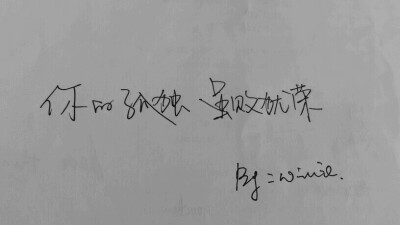 你的孤独 虽败犹荣
By=winnie.